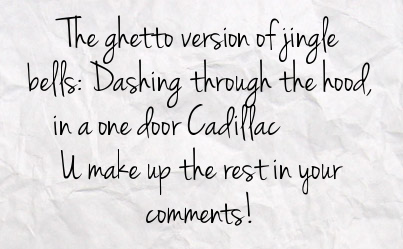 The ghetto version of jingle
bells: Dashing through the hood,
in a one door Cadillac
U make up the rest in your
comments!